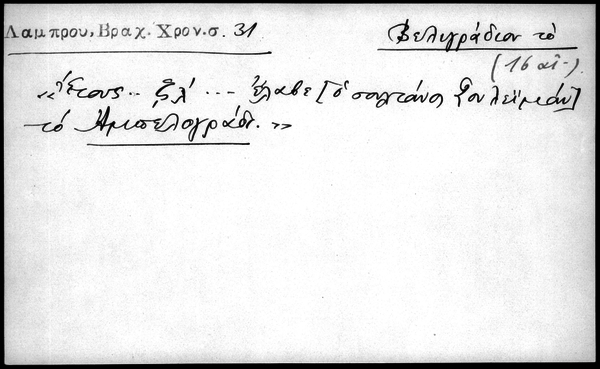 Λαμπρου, Βραχ. Χρον. σ. 31
Βελιγράδιον τὸ
(16 αἰ.)
«Ἔτους .. ζλʹ ... ἔλαβε [ὁ σουλτάνος Σουλεϊμάν]
τὸ Ἀμπελογράδι.»